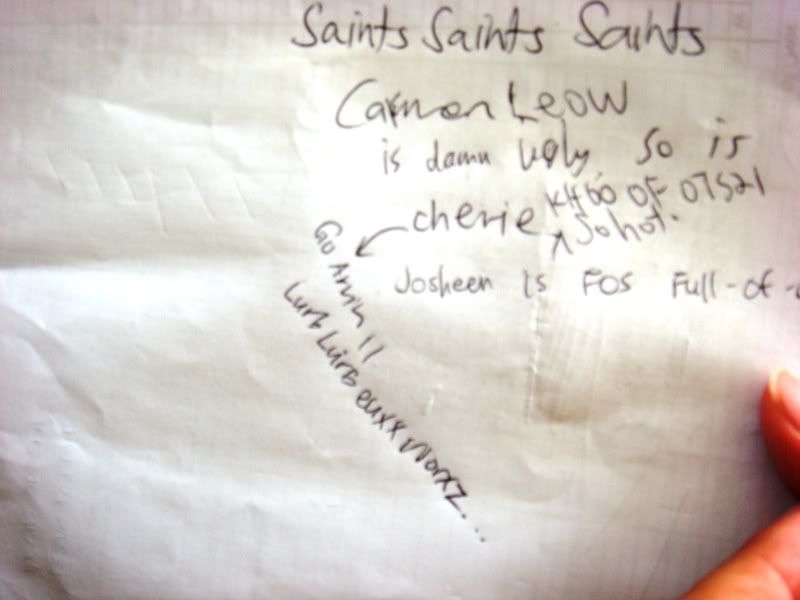 Saints Saints Saints
Carmen Leow
is damn ugly, so is
cherie Khoo of 07S21
So hot.
Josheen is FOS Full-of-
Go Arvin !!
Lurb Lurb euxx Worxz...